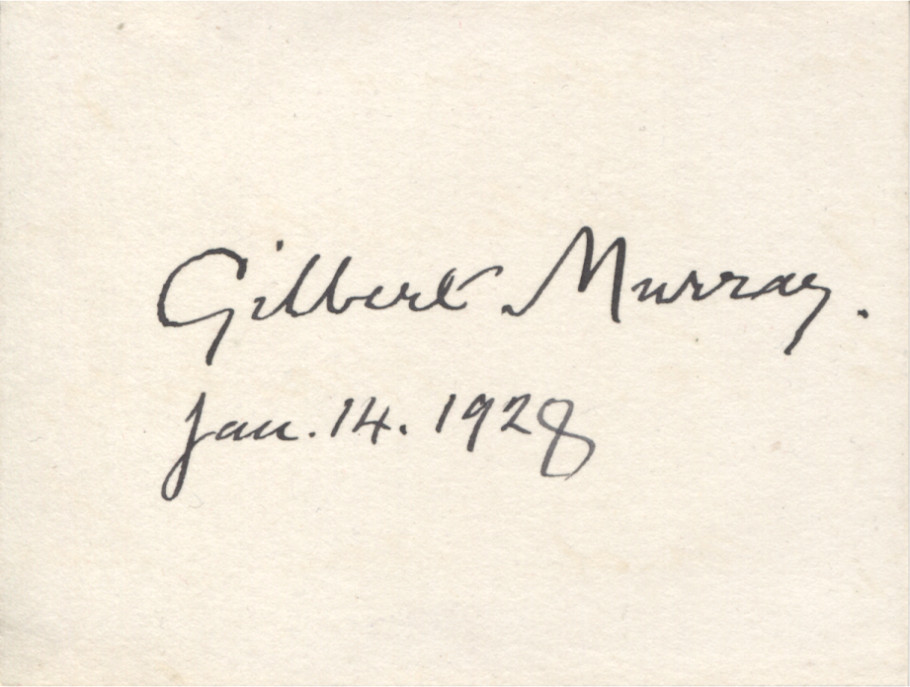 Gilbert Murray.
Jan. 14. 1928